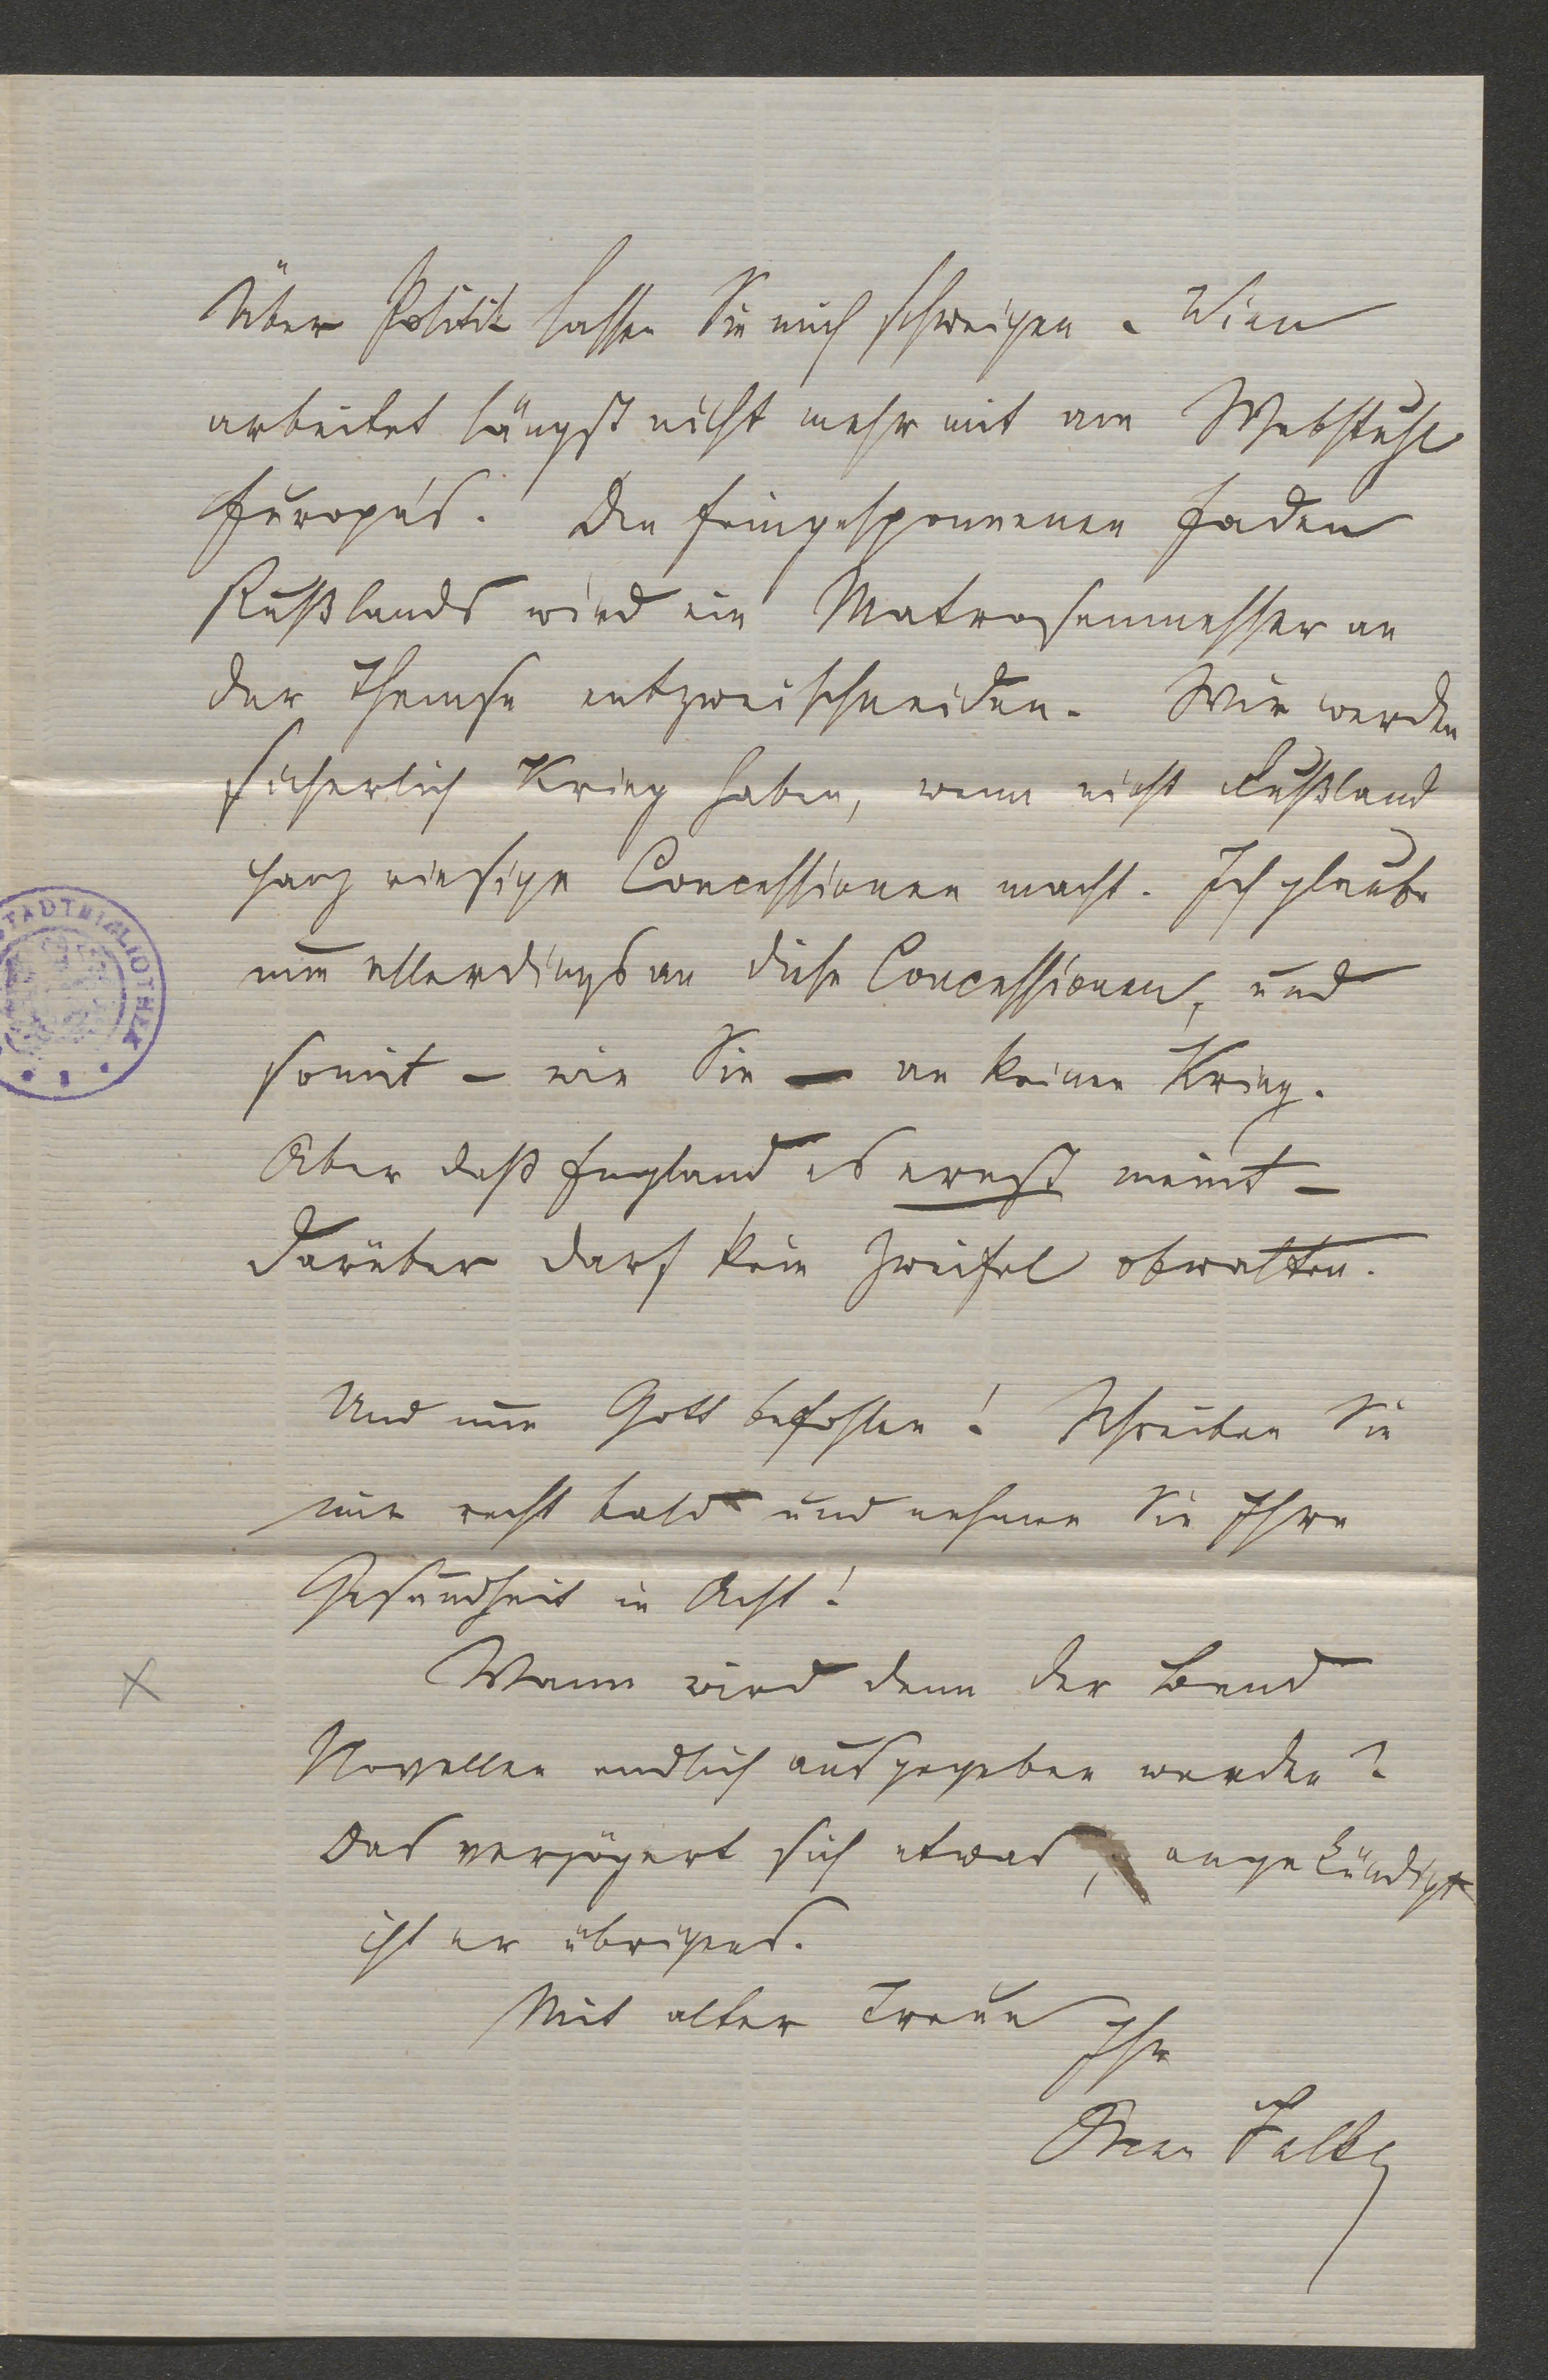 Über Politik lassen Sie mich schweigen. Wien
arbeitet längst nicht mehr mit am Webstuhl
Europa's. Den feingesponnenen Faden
Rußlands wird ein Matrosenmesser an
der Themse entzweischneiden. Wir werden
sicherlich Krieg haben, wenn nicht Rußland
ganz riesige Concessionen macht. Ich glaube
nun allerdings an diese Concessionen, und
somit – wie Sie – an keinen Krieg.
STADTBIBLIOTHEK
Aber daß England es ernst meint –
darüber darf kein Zweifel obwalten.
Und nun Gott befohlen! Schreiben Sie
mir recht bald und nehmen Sie Ihre
Gesundheit in Acht!
Wann wird denn der Band
Novellen endlich ausgegeben werden?
Das verzögert sich etwas, angekündigt
ist er übrigens.
Mit alter Treue
Ihr